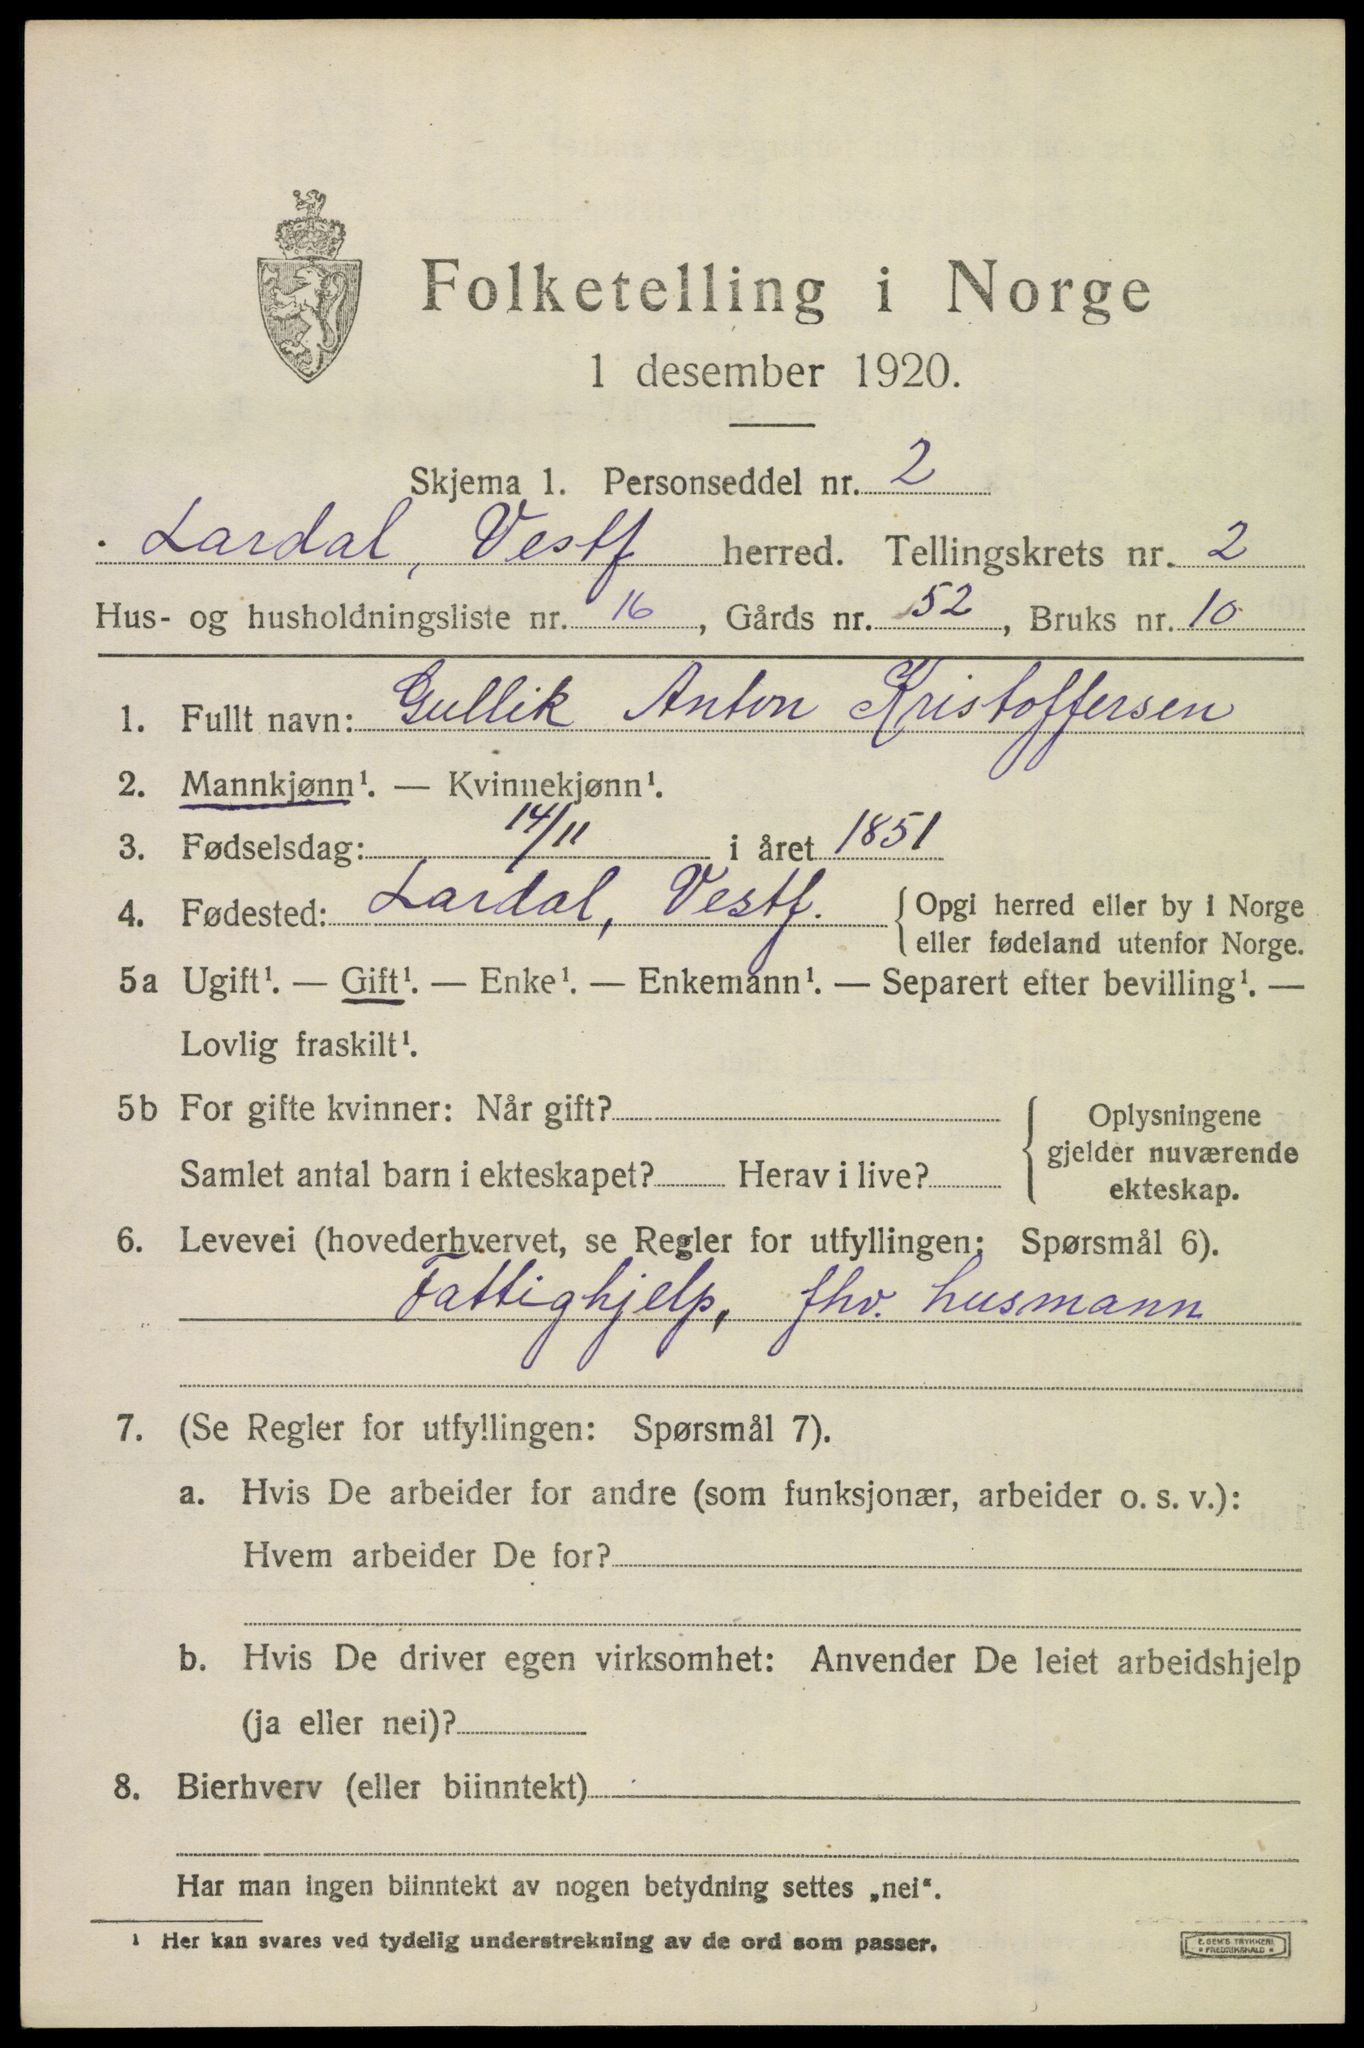 Folketelling i Norge
1 desember 1920.
Skjema 1. Personseddel nr. 2
Lardal, Vestf herred. Tellingskrets nr. 2
Hus- og husholdningsliste nr. 16, Gårds nr. 52, Bruks nr. 10
1. Fullt navn: Gullik Anton Kristoffersen
2. Mannkjønn¹. — Kvinnekjønn¹.
3. Fødselsdag: 14/11 i året 1851
4. Fødested: Lardal, Vestf. { Opgi herred eller by i Norge
eller fødeland utenfor Norge.
5a Ugift¹. — Gift¹. — Enke¹. — Enkemann¹. — Separert efter bevilling¹. —
Lovlig fraskilt¹.
5b For gifte kvinner: Når gift?
Samlet antal barn i ekteskapet? Herav i live?
Oplysningene
gjelder nuværende
ekteskap.
6. Levevei (hovederhvervet, se Regler for utfyllingen; Spørsmål 6).
Fattighjelp, fhv. husmann
7. (Se Regler for utfyllingen: Spørsmål 7).
a. Hvis De arbeider for andre (som funksjonær, arbeider o. s. v.):
Hvem arbeider De for?
b. Hvis De driver egen virksomhet: Anvender De leiet arbeidshjelp
(ja eller nei)?
8. Bierhverv (eller biinntekt)
Har man ingen biinntekt av nogen betydning settes „nei“.
¹ Her kan svares ved tydelig understrekning av de ord som passer.
E. SEM'S TRYKKERI
FREDRIKSHALD